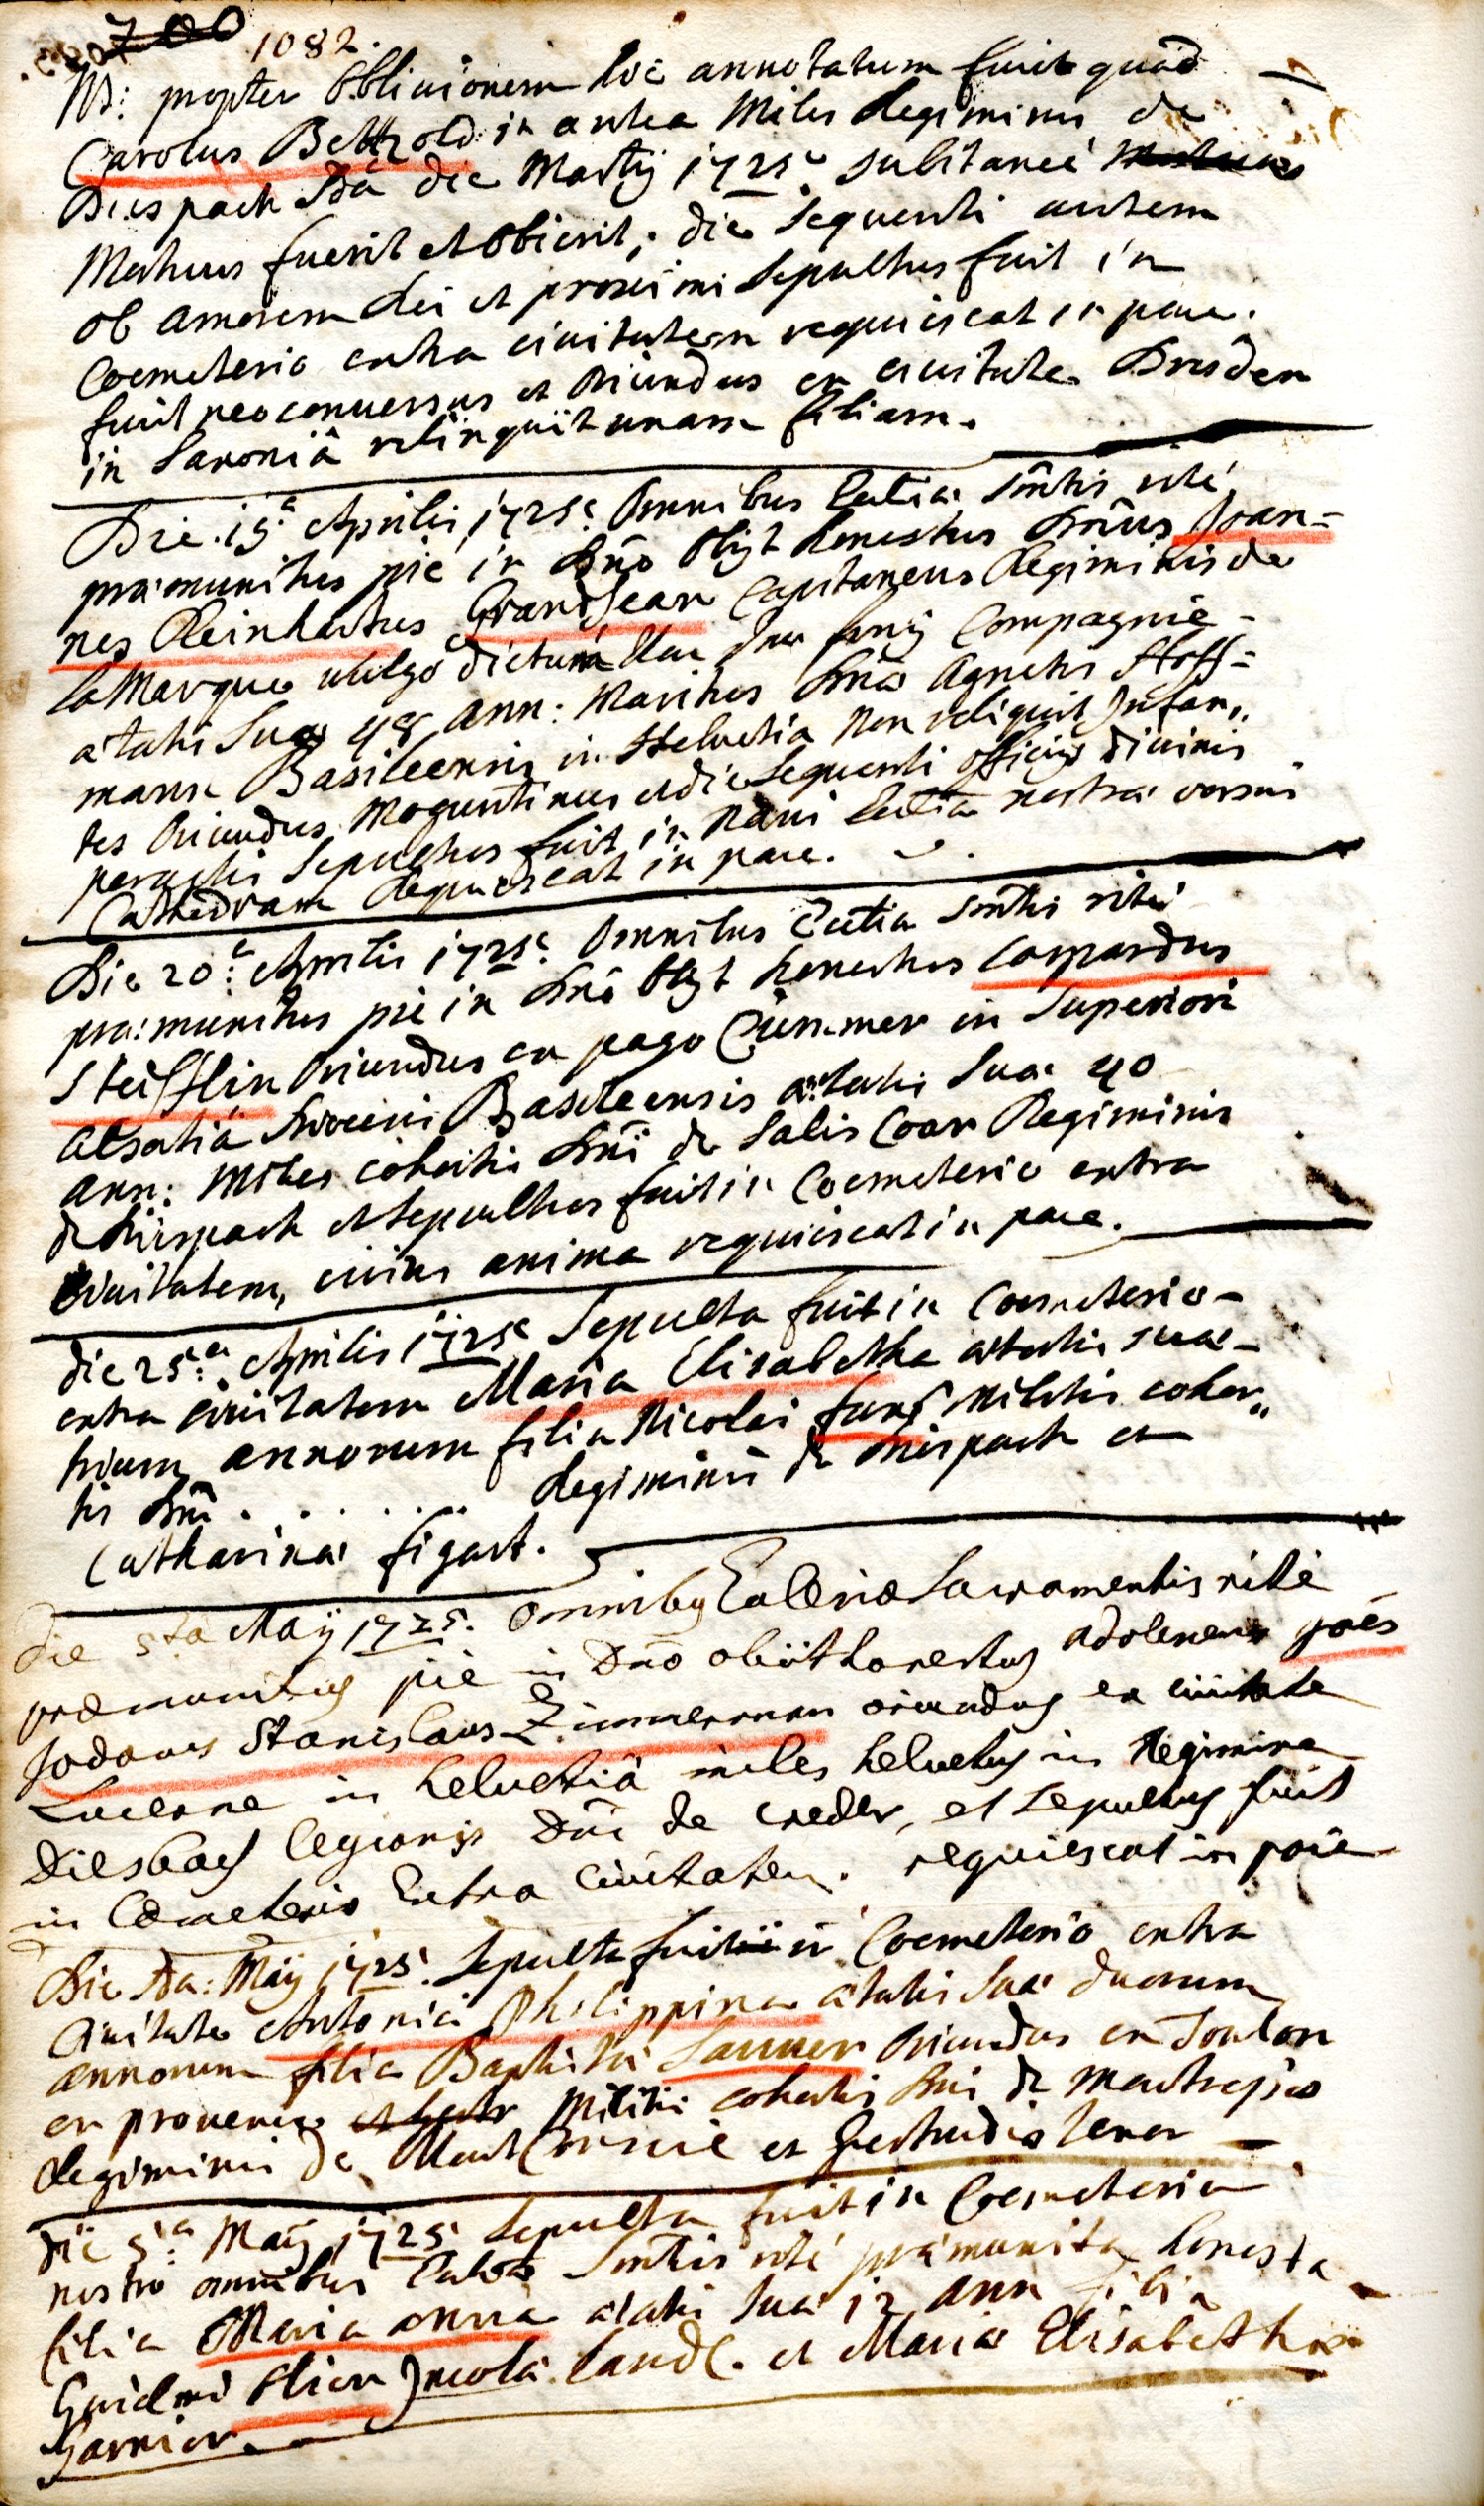 700
1082.
NB: propter oblivionem hoc annotatum fuit quòd
Carolus Bettzold in antea Miles Regiminis de
Diespach 8va die Martÿ 1725. subitaneè
Mortuus fuerit et obierit; die sequenti autem
ob amorem dei et proximi sepultus fuit in
Coemeterio extra civitatem requiescat in pace.
fuit neoconversus et oriundus ex civitate Dresden
in Saxoniâ relinquit unam filiam.
Die 15.a Aprilis 1725. omnibus Eccliae Smtis ritè
praemunitus piè in Dno obÿt honestus Dnus Joan=
nes Reinhartus Grandjean Capitaneus Regiminis de
la Marque vulgò dictum
aetatis suae 48 ann: Maritus Dnae Agnetis Hoff=
mann Basileensis in Helvetia non reliquit Infan„
tes oriundus Moguntinus et die sequenti officÿs divinis
peractis sepultus fuit in navi Eccliae nostrae versus
Cathedram Requiescat in pace.
Die 20.a Aprilis 1725. omnibus Eccliae Smtis ritè
praemunitus piè in Dno obÿt honestus Caspardus
Steifflin oriundus ex pago Cümmer in superiori
alsatiâ Dioecesis Basileensis aetatis suae 40
ann: Miles cohortis Dni de Salis Coar Regiminis
de Dirspach et sepultus fuit in Coemeterio extra
Civitatem, cuius anima requiescat in pace.
die 25.a Aprilis 1725 sepulta fuit in Coemeterio -
extra civitatem Maria Elisabetha aetatis suae -
trium annorum filia Nicolai fans Militis cohor„
tis Dni . . . . . . . Regiminis de Dirspach et
Catharinae figart.
Die 5ta Maÿ 1725. omnibus Eccleriae Sacramentis ritè
praemunitus piè in Dno obiit honestus adolescens joës
Jodocus Stanislaus Zimmerman oriundus ex civitate
Lucerne in helvetiâ miles helvetus in Regimine
Diesbach legionis Dni de creder, et sepultus fuit
in Coemeterio Extra Civitatem. requiescat in pace
Die 8va: Maÿ 1725. sepulta fuit in Coemeterio extra
Civitate Antonia Philippina aetatis suae duorum
annorum filia Baptistae Sauver oriundus ex Toulon
ex provence Militis cohortis Dni de
Regiminis de Mont et Gertrudis lener
die 5.a Maÿ 1725 sepulta fuit in Coemeterio
nostro omnibus Eccliae Smtis ritè praemunita honesta
filia Maria Anna aetatis suae 12 ann filia
Guielmi Hier Incola landl. et Maria Elisabetha
Garnier.